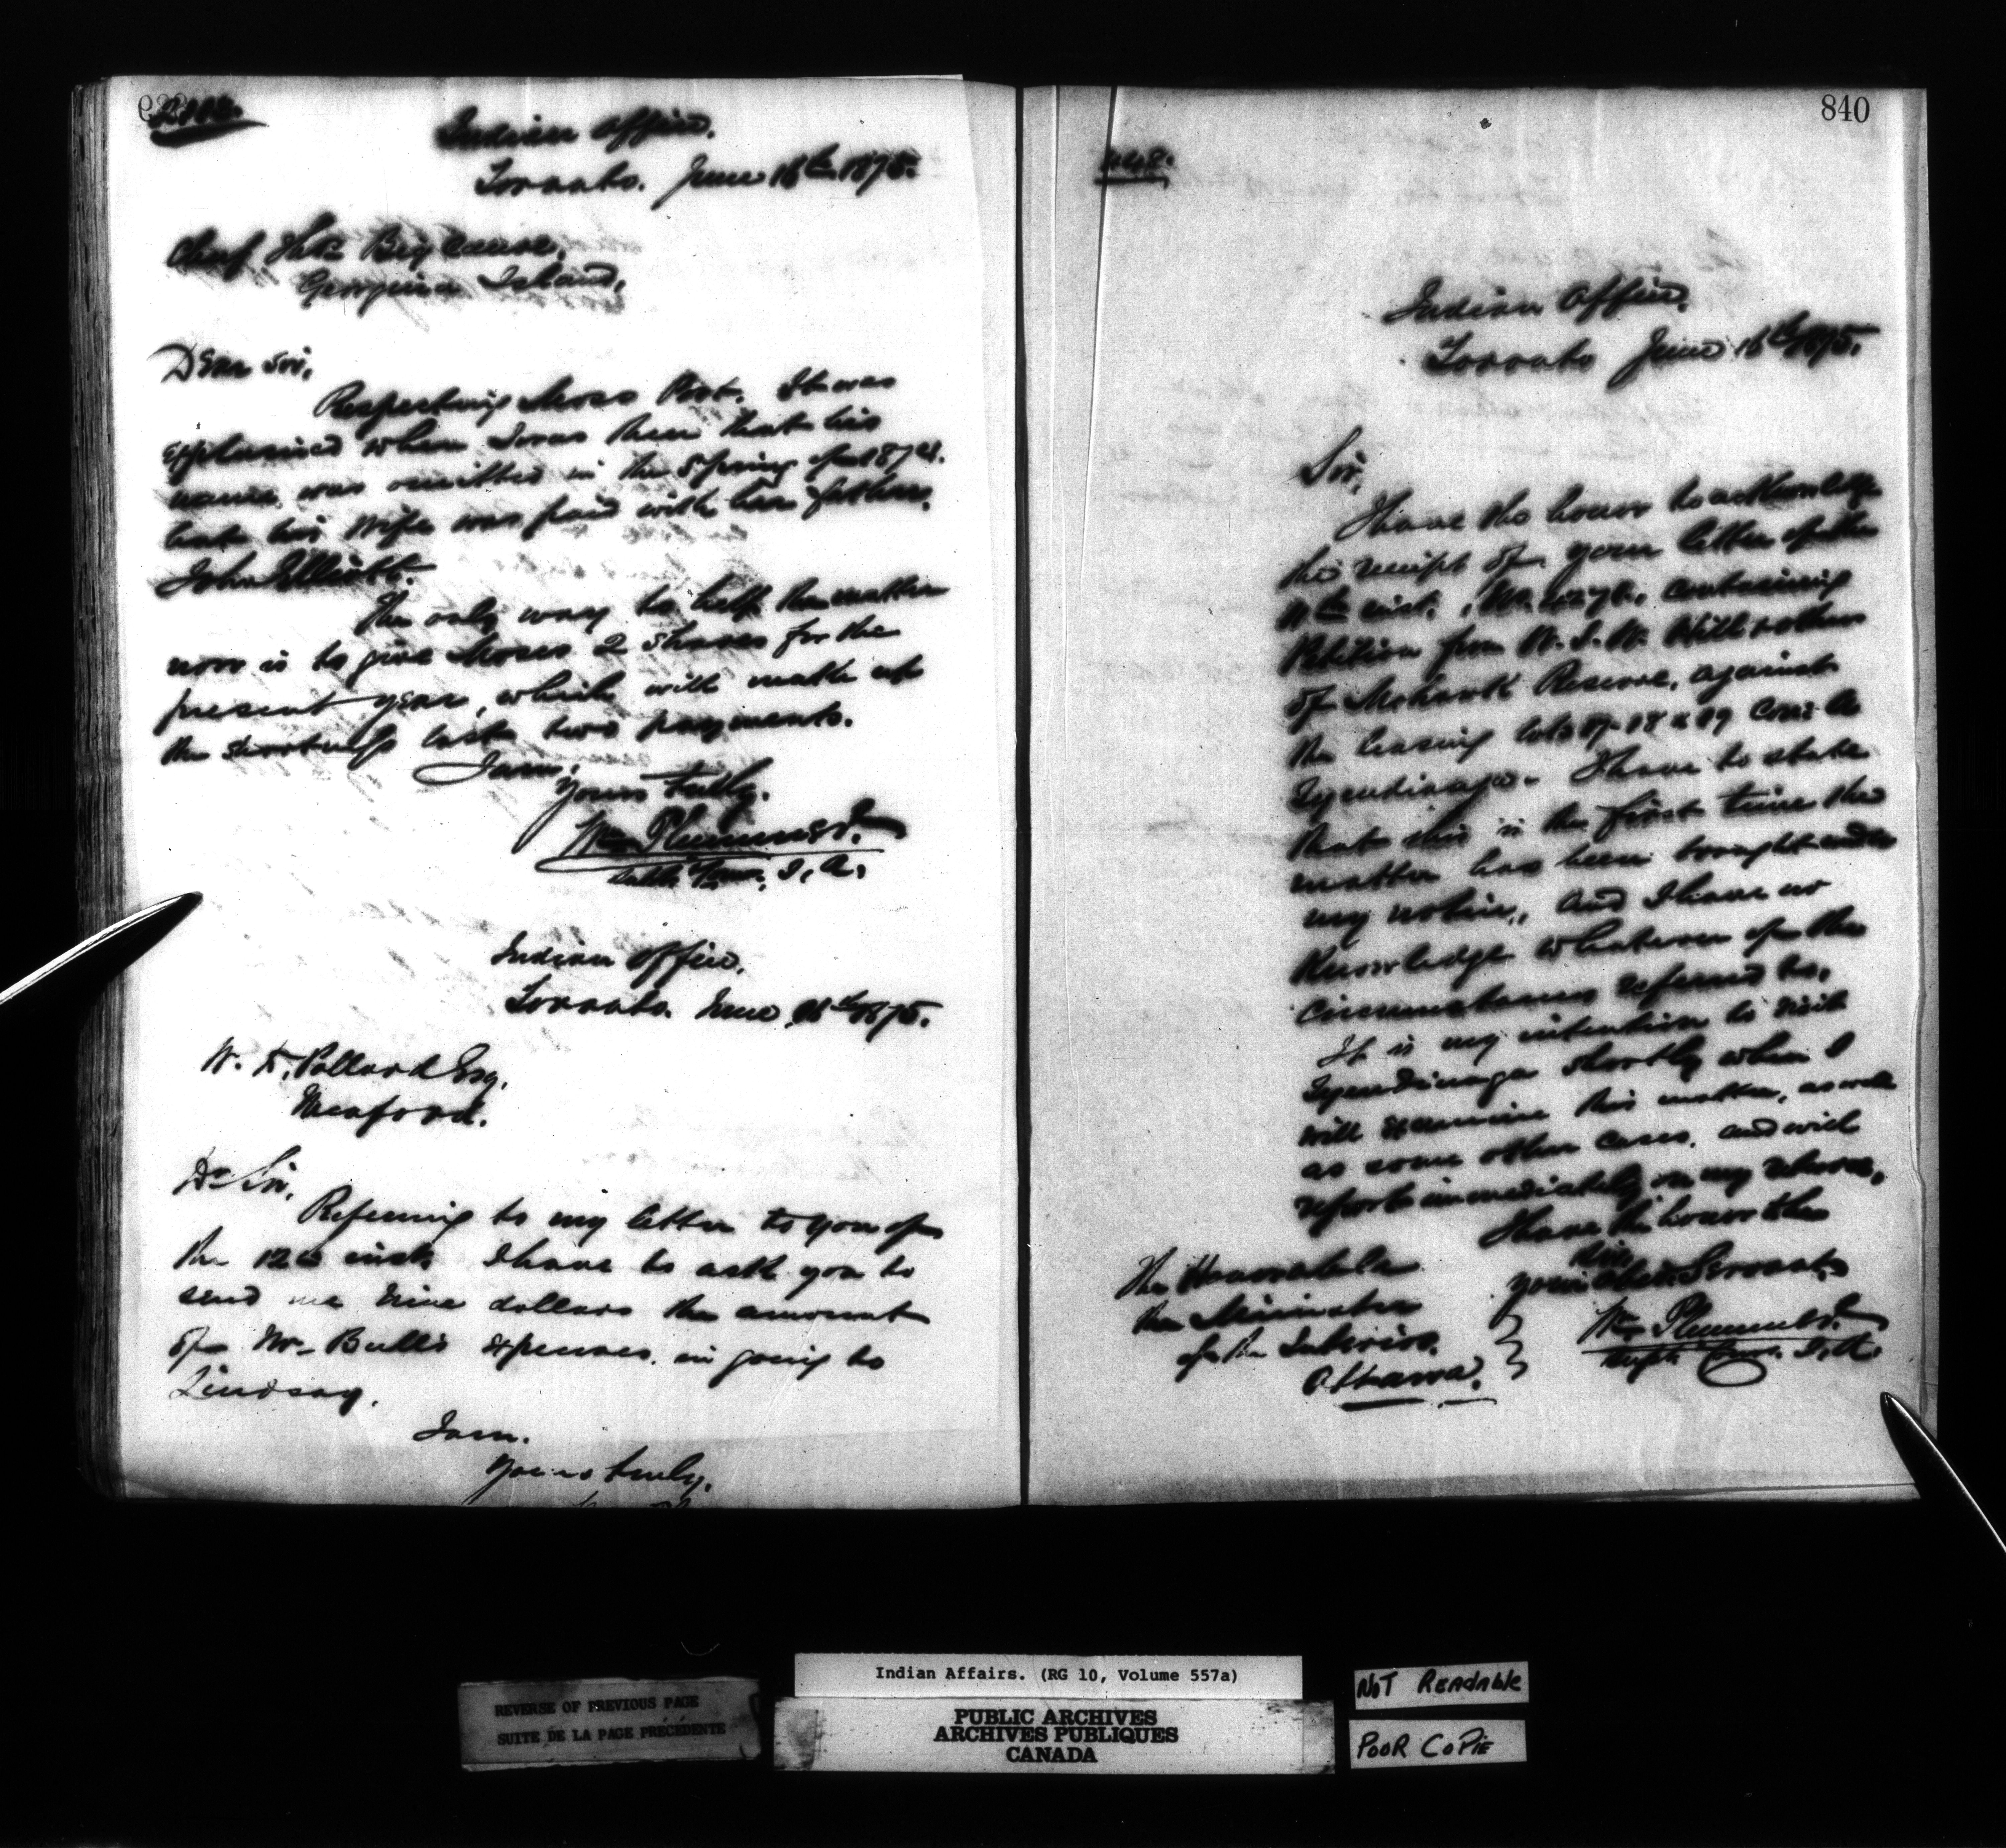 Indian Office,
Toronto. June 16th 1875.
Chief Big Canoe,
Georgina Island,
Dear Sir,
Respecting Moses Port. It was
explained when I was there that his
name was omitted in the Spring of 1874.
but his wife was paid with her father,
John Elliott.
The only way to help the matter
now is to give Moses 2 shares for the
present year, which will make up
the shortness last two payments.
I am,
Yours truly,
Wm Plummer
Supt Comr. I. A.
Indian Office,
Toronto. June 16th 1875.
W. Pollard Esq,
Meaford.
Dr Sir,
Referring to my letter to you of
the 12th inst I have to ask you to
send me nine dollars the amount
of Mr Bull's expenses in going to
Lindsay.
I am.
Yours truly,
840
448.
Indian Office,
Toronto June 16th 1875.
Sir,
I have the honor to acknowledge
the receipt of your letter of the
11th inst. No. containing
Petition from W. J. W. Hill & others
of Mohawk Reserve, against
the leasing lots 87 88 & 89 Con: A
Tyendinaga. I have to state
that this is the first time the
matter has been brought under
my notice, and I have no
knowledge whatever of the
circumstances referred to,
It is my intention to visit
Tyendinaga shortly when I
will examine this matter, as well
as some other cases, and will
report immediately on my return,
I have the honor to be
Sir
your obedt Servant,
Wm Plummer
Supt Comr. I. A.
The Honorable
the Minister
of the Interior,
Ottawa.
REVERSE OF PREVIOUS PAGE
SUITE DE LA PAGE PRÉCÉDENTE
Indian Affairs. (RG 10, Volume 557a)
PUBLIC ARCHIVES
ARCHIVES PUBLIQUES
CANADA
NOT READABLE
POOR COPIE